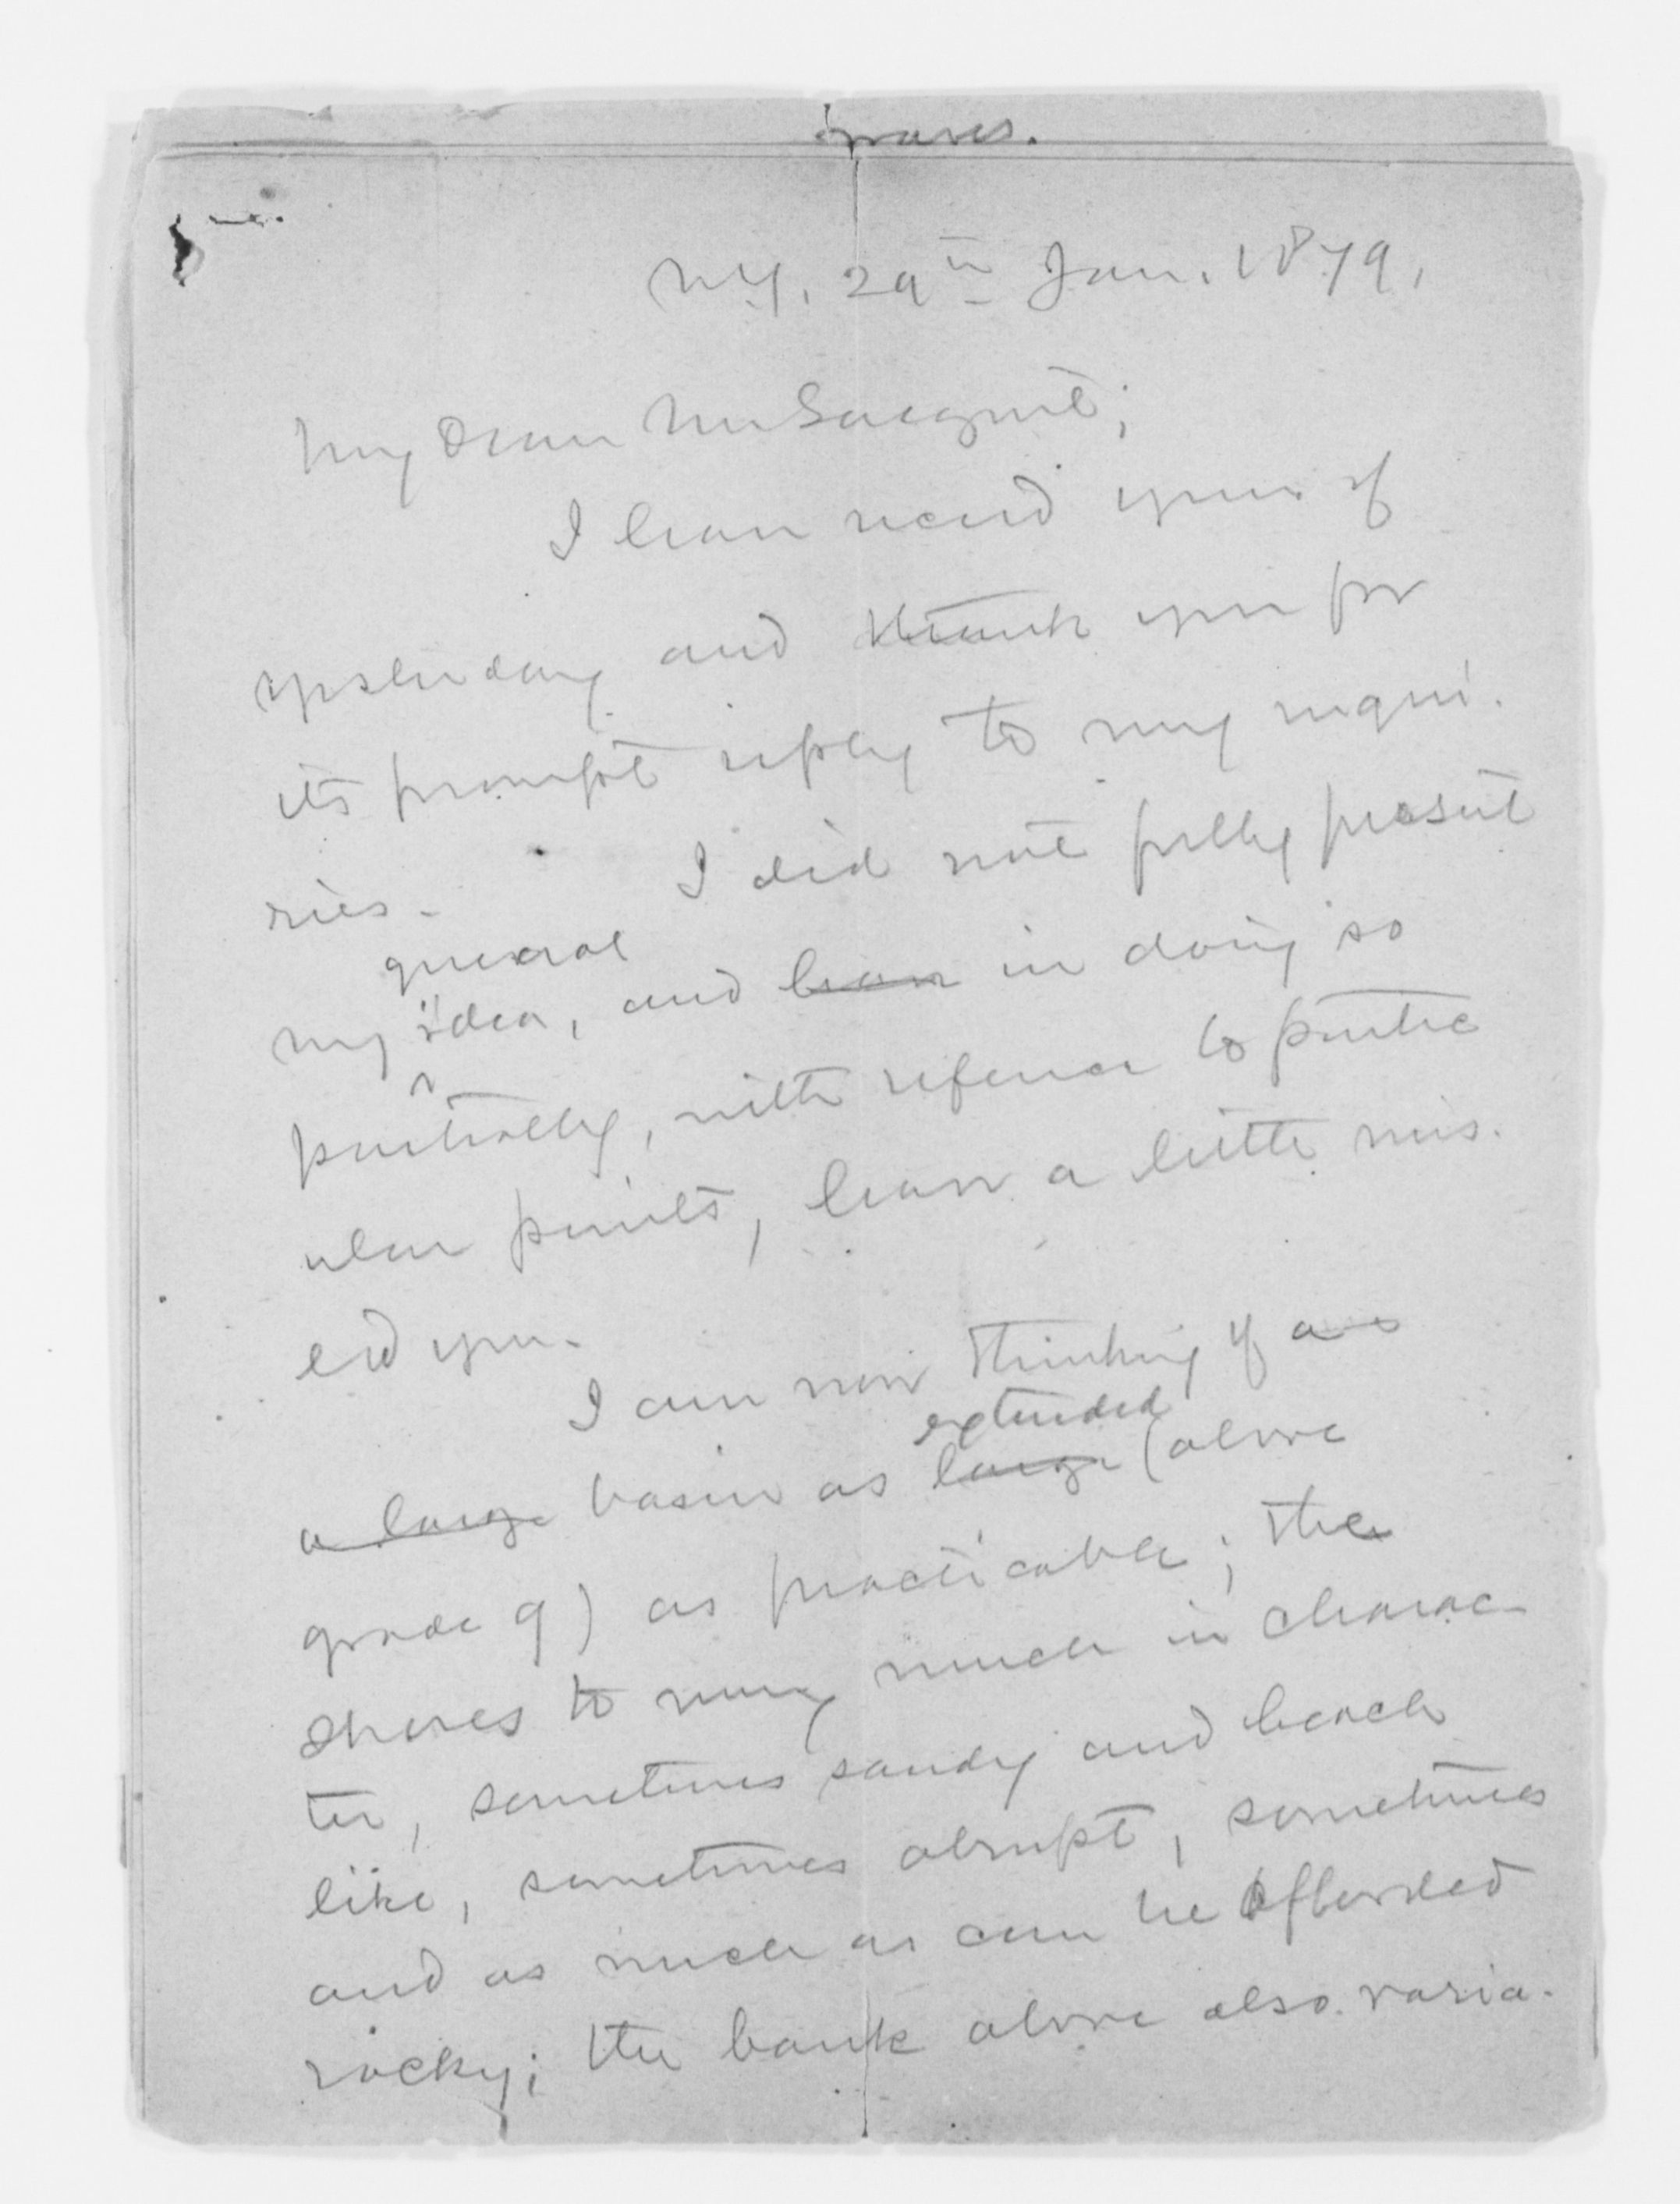 N.Y. 29th Jan. 1879.
My Dear Mr Sargent;
I have rec'd yours of
yesterday and thank you for
its prompt reply to my inqui-
ries. I did not fully present
general
my idea, and have in doing so
partially, with reference to partic
ular points, have a little mis-
led you.
I am now thinking of a
extended
a large basin as large (above
grade 9) as practicable; the
shores to vary much in charac-
ter, sometimes sandy and beach
like, sometimes abrupt, sometimes
and as much as can be afforded
rocky; the bank above also varia-